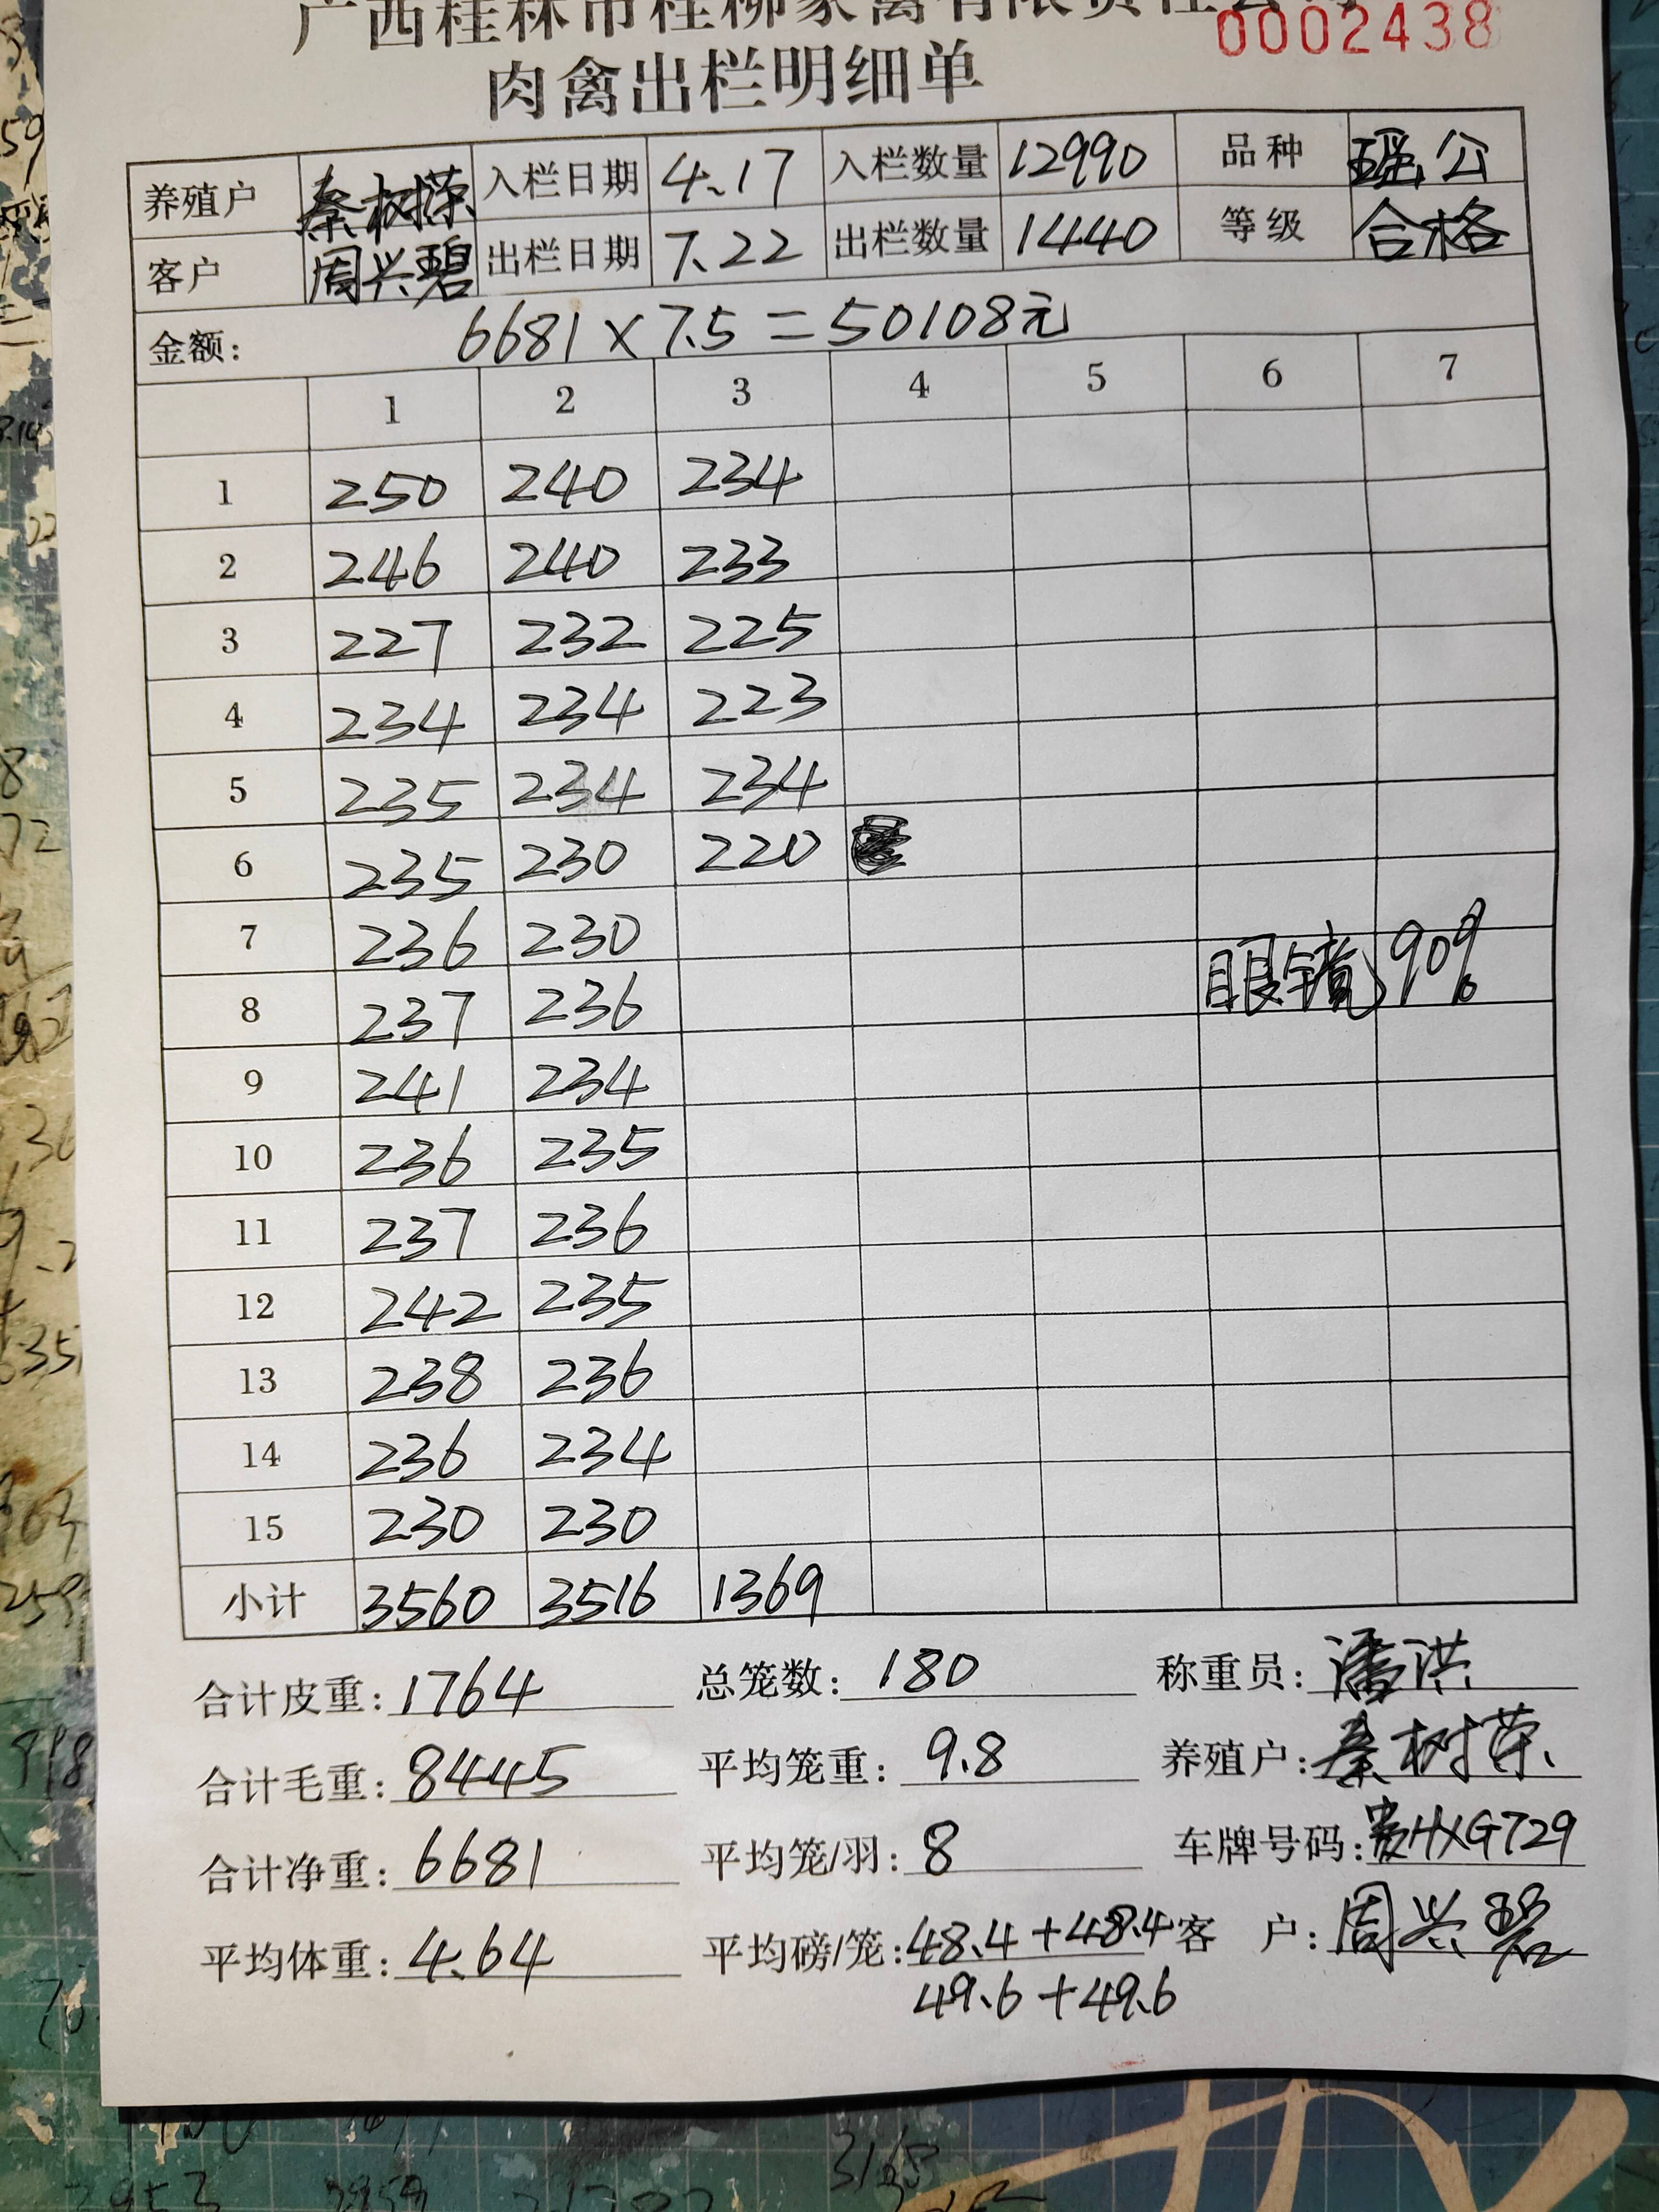 广西桂林市桂柳家禽有限责任公司
0002438
肉禽出栏明细单
养殖户 秦树荣 入栏日期 4.17 入栏数量 12990 品种 瑶公
客户 周兴碧 出栏日期 7.22 出栏数量 1440 等级 合格
金额: 6681×7.5=50108元
1 2 3 4 5 6 7
1 250 240 234
2 246 240 233
3 227 232 225
4 234 234 223
5 235 234 234
6 235 230 220
7 236 230
眼镜90%
8 237 236
9 241 234
10 236 235
11 237 236
12 242 235
13 238 236
14 236 234
15 230 230
小计 3560 3516 1369
合计皮重: 1764 总笼数: 180 称重员: 潘洪
合计毛重: 8445 平均笼重: 9.8 养殖户: 秦树荣
合计净重: 6681 平均笼/羽: 8 车牌号码: 贵HXG729
平均体重: 4.64 平均磅/笼: 48.4+48.4 客 户: 周兴碧
49.6+49.6